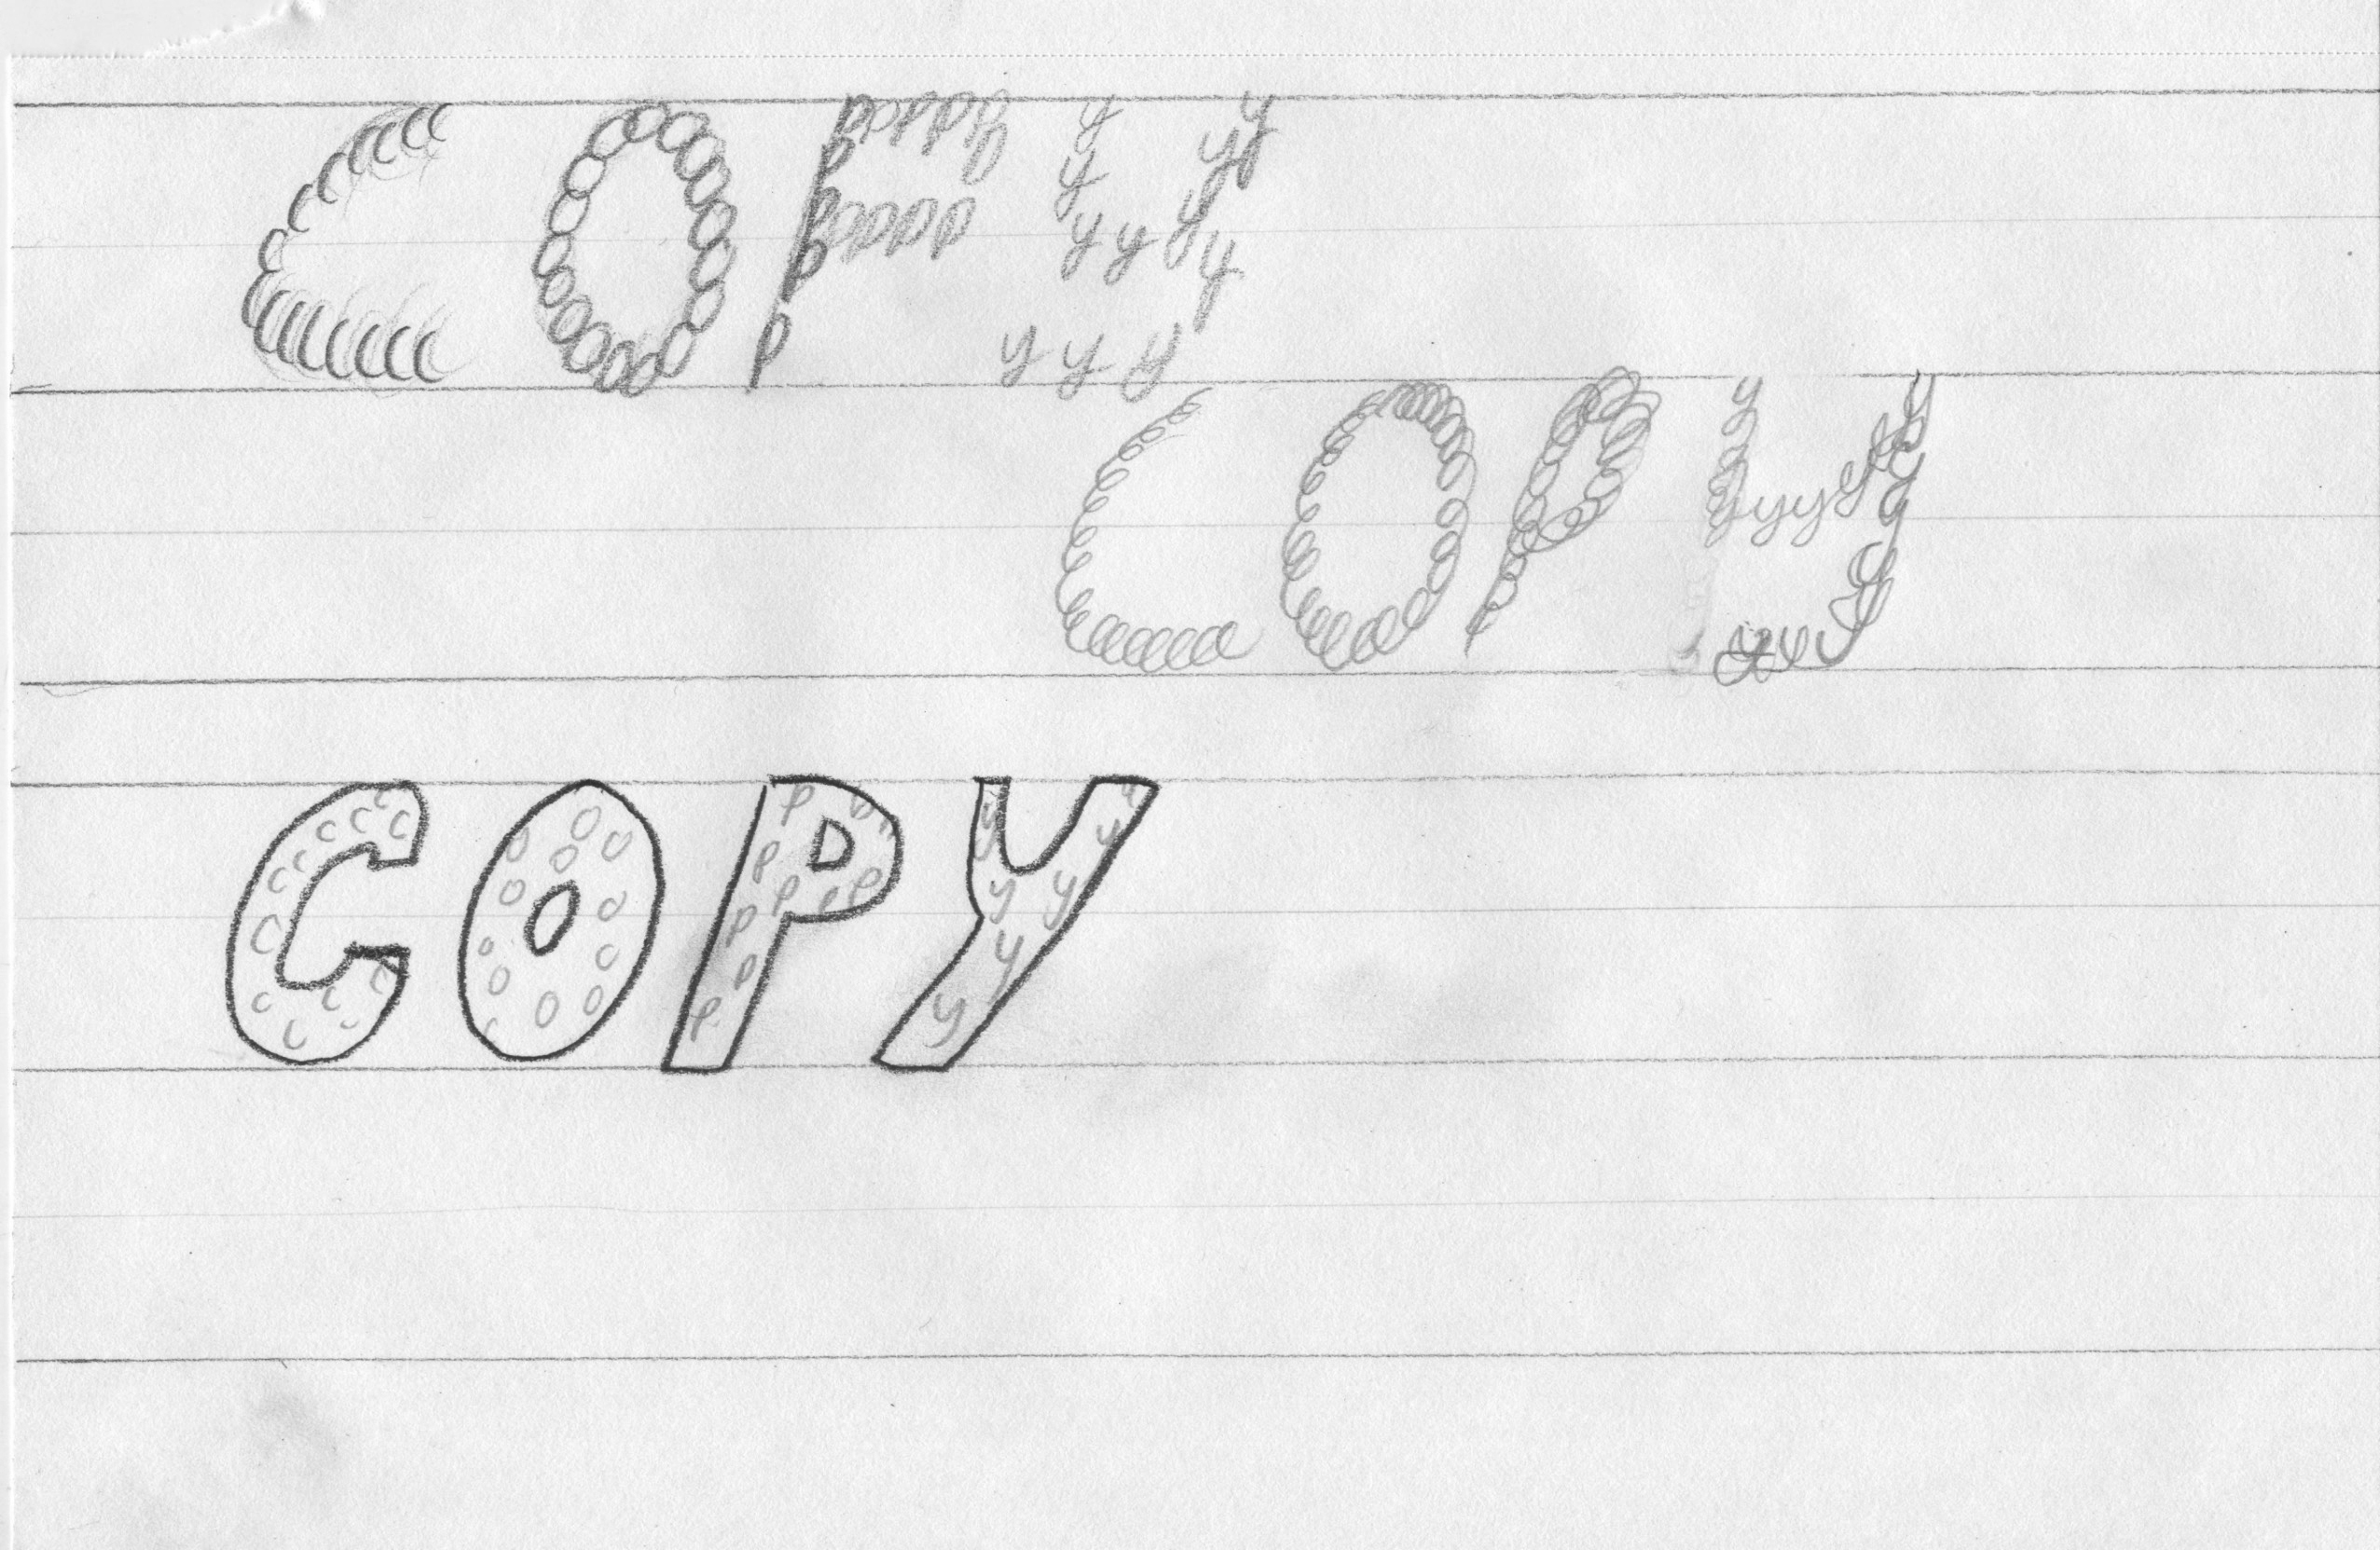 COPY
COPY
COPY